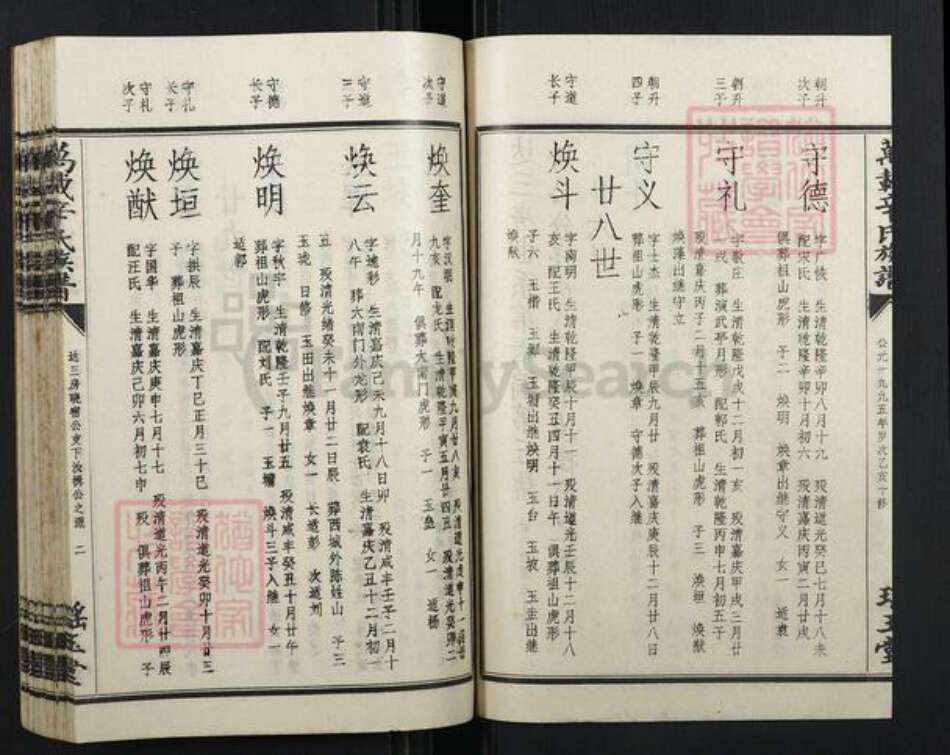 萬載辛氏族譜
公元一九九五年岁次乙亥十修
朝升
次子
守德
字广俊 生清乾隆辛卯八月十九 殁清道光癸巳七月十八未
配宋氏 生清乾隆辛卯十月初六 殁清嘉庆丙寅二月廿戌
俱葬祖山虎形 子二 焕明 焕章出继守义 女一 适袁
朝升
三子
守礼
字敬庄 生清乾隆戊戌十二月初一亥 殁清嘉庆甲戌三月廿
一戌 葬演武亭月形 配郭氏 生清乾隆丙申七月初五午
殁清嘉庆丙子二月十五亥 葬祖山虎形 子三 焕垣 焕猷
焕藻出继守立
朝升
四子
守义
字士杰 生清乾隆甲辰九月廿 殁清嘉庆庚辰十二月廿八日
葬祖山虎形 子一 焕章 守德次子入继
廿八世
守道
长子
焕斗
字南明 生清乾隆甲辰十月十一 殁清道光壬辰十二月十八
亥 配王氏 生清乾隆癸丑四月十一日午 俱葬祖山虎形
子六 玉楷 玉彩 玉 出继焕明 玉台 玉坡 玉圭出继
焕猷
守道
次子
焕奎
字汉明
九亥 配龙氏 生清乾隆甲寅五月廿四丑 殁清道光癸卯二
月十九午 俱葬大南门虎形 子一 玉垒 女一 适杨
守道
三子
焕云
字 彩 生清嘉庆己未九月十八日卯 殁清咸丰壬子二月十
八午 葬大南门外龙形 配袁氏 生清嘉庆乙丑十二月初一
丑 殁清光绪癸未十一月廿二日辰 葬西城外陈姓山 子三
玉珑 日修 玉田出继焕章 女一 长适彭 次适刘
守德
长子
焕明
字秋宇 生清乾隆壬子九月廿五 殁清咸丰癸丑十月廿午
葬祖山虎形 配刘氏 子一 玉 焕斗三子入继 女一
适郭
守礼
长子
焕垣
字拱辰 生清嘉庆丁巳正月三十巳 殁清道光癸卯十月廿三
子 葬祖山虎形
守礼
次子
焕猷
字国华 生清嘉庆庚申七月十七 殁清道光丙午二月廿四辰
配汪氏 生清嘉庆己卯六月初七申 殁 俱葬祖山虎形 子
萬載辛氏族譜
二
FamilySearch